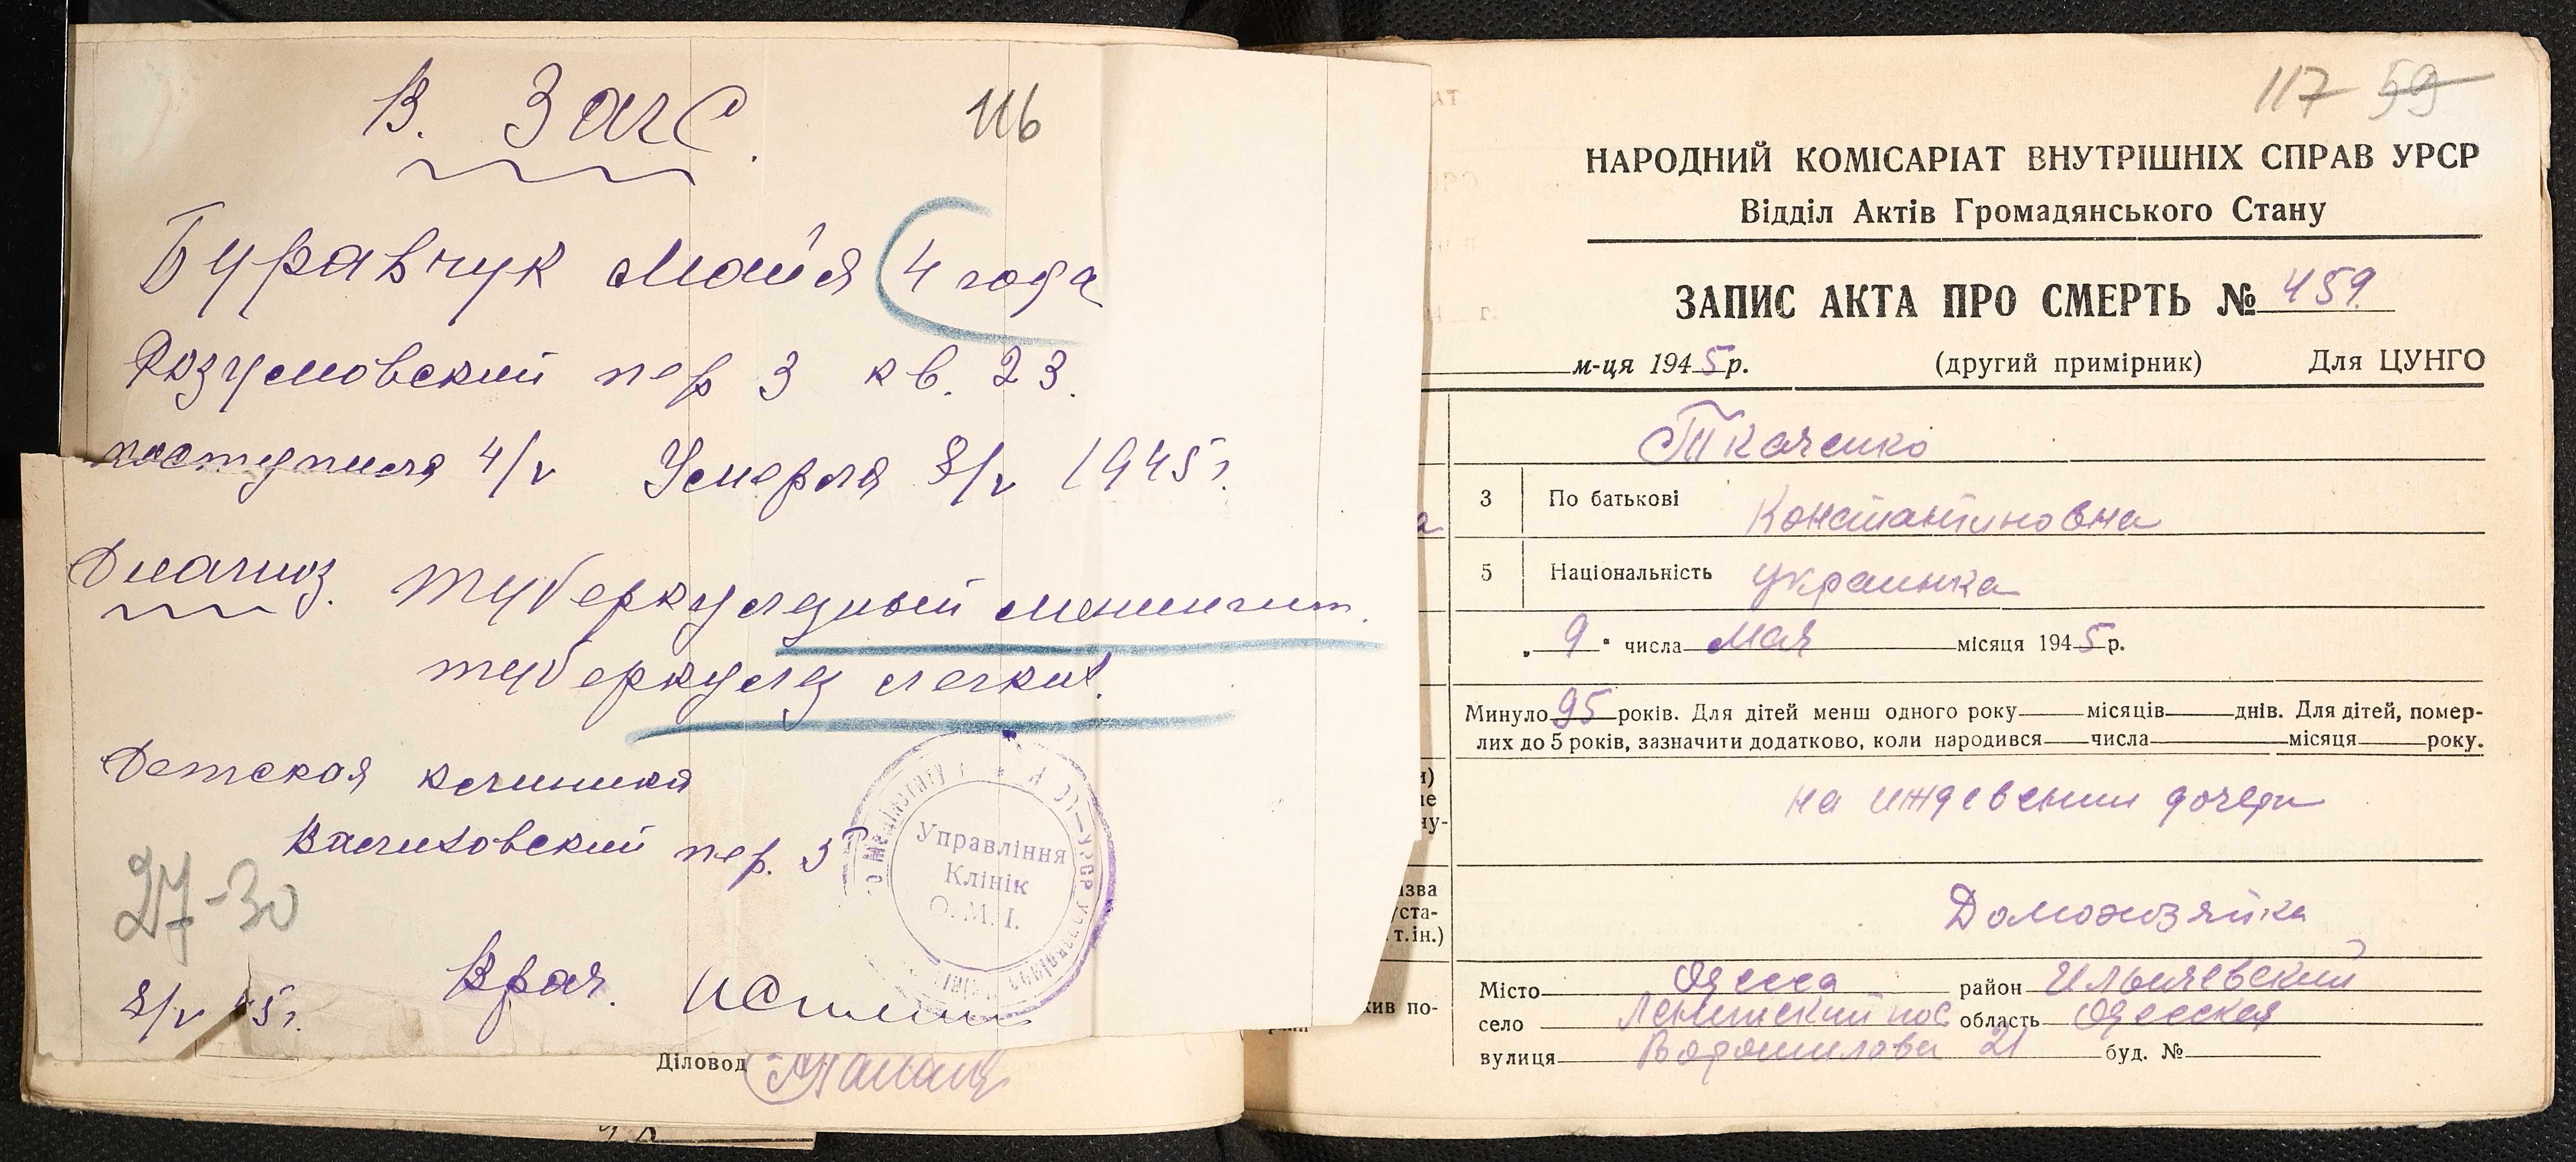 В. Загс.
116
Буравчук Майя 4 года
Розумовский пер 3 кв. 23.
поступила 4/V Умерла 8/V 1945 г.
Диагноз. Туберкулезный менингит.
туберкулез легких.
Детская клиника
пер. 3
Управління
Клінік
О. М. І.
27-30
Врач.
8/V 45 г.
Діловод
117 59
НАРОДНИЙ КОМІСАРІАТ ВНУТРІШНІХ СПРАВ УРСР
Відділ Актів Громадянського Стану
ЗАПИС АКТА ПРО СМЕРТЬ № 459
м-ця 1945 р. (другий примірник) Для ЦУНГО
Ткаченко
3 По батькові Константиновна
5 Національність украинка
„ 9 " числа Мая місяця 1945 р.
Минуло 95 років. Для дітей менш одного року місяців днів. Для дітей, помер-
лих до 5 років, зазначити додатково, коли народився числа місяця року.
на иждевении дочери
Домохозяйка
Місто Одесса район Ильичевский
село Ленинский пос область Одесская
вулиця Ворошилова 21 буд. №